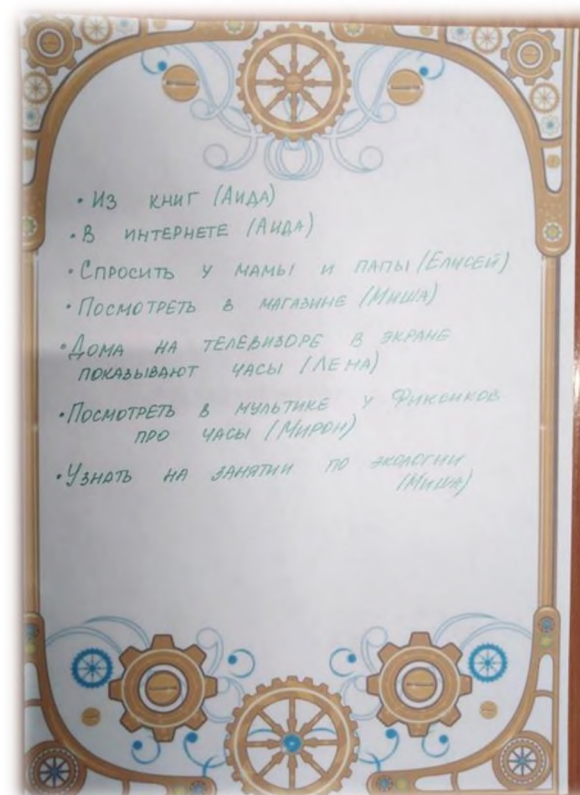 • Из книг (Аида)
• В интернете (Аида)
• Спросить у мамы и папы (Елисей)
• Посмотреть в магазине (Миша)
• Дома на телевизоре в экране
показывают часы (Лена)
• Посмотреть в мультике у Фиксиков
про часы (Мирон)
• Узнать на занятии по экологии
(Миша)